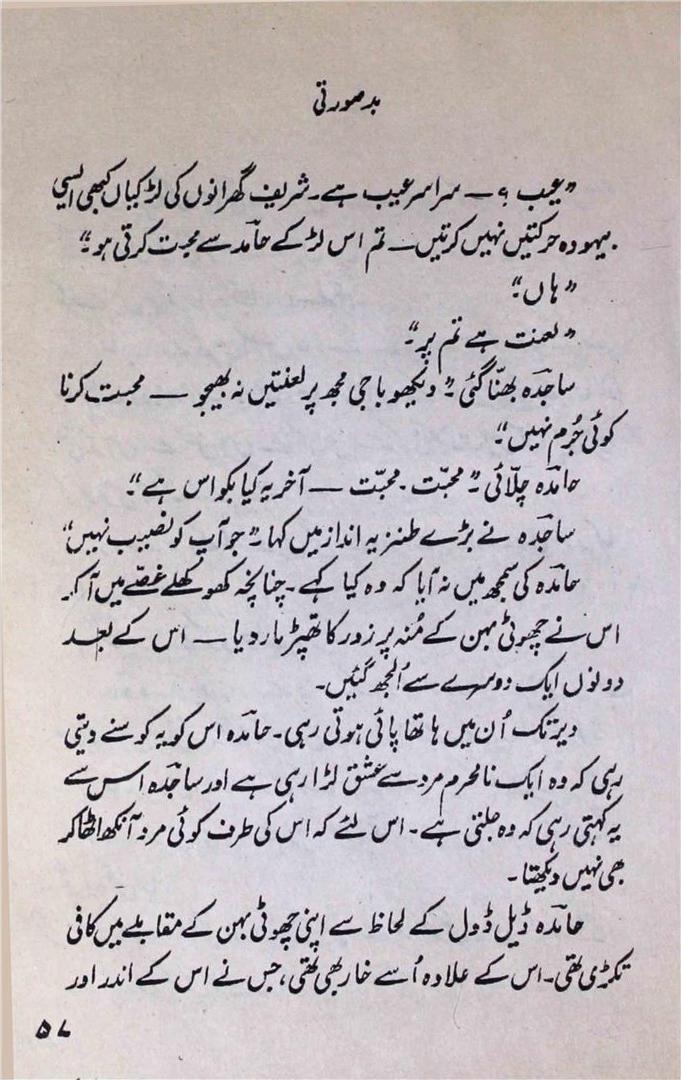 بدصورتی
”عیب ؟ — سراسر عیب ہے۔ شریف گھرانوں کی لڑکیاں کبھی ایسی
بیہودہ حرکتیں نہیں کرتیں — تم اس لڑکے حامد سے محبت کرتی ہو؟“
”ہاں“
”لعنت ہے تم پر“۔
ساجدہ بھنّا گئی۔ ”دیکھو باجی مجھ پر لعنتیں نہ بھیجو — محبت کرنا
کوئی جُرم نہیں“۔
حامدہ چلّائی۔ ”محبّت۔ محبّت — آخر یہ کیا بکواس ہے“۔
ساجدہ نے بڑے طنزیہ انداز میں کہا۔ ”جو آپ کو نصیب نہیں“
حامدہ کی سمجھ میں نہ آیا کہ وہ کیا کہے۔ چنانچہ کھوکھلے غصّے میں آ کر
اس نے چھوٹی بہن کے مُنہ پر زور کا تھپڑ مار دیا — اس کے بعد
دونوں ایک دوسرے سے اُلجھ گئیں۔
دیر تک اُن میں ہاتھا پائی ہوتی رہی۔ حامدہ اس کو یہ کوسنے دیتی
رہی کہ وہ ایک نامحرم مرد سے عشق لڑا رہی ہے اور ساجدہ اس سے
یہ کہتی رہی کہ وہ جلتی ہے۔ اس لئے کہ اس کی طرف کوئی مرد آنکھ اٹھا کر
بھی نہیں دیکھتا۔
حامدہ ڈیل ڈول کے لحاظ سے اپنی چھوٹی بہن کے مقابلے میں کافی
تکڑی تھی۔ اس کے علاوہ اُسے خار بھی تھی، جس نے اس کے اندر اور
۵۷